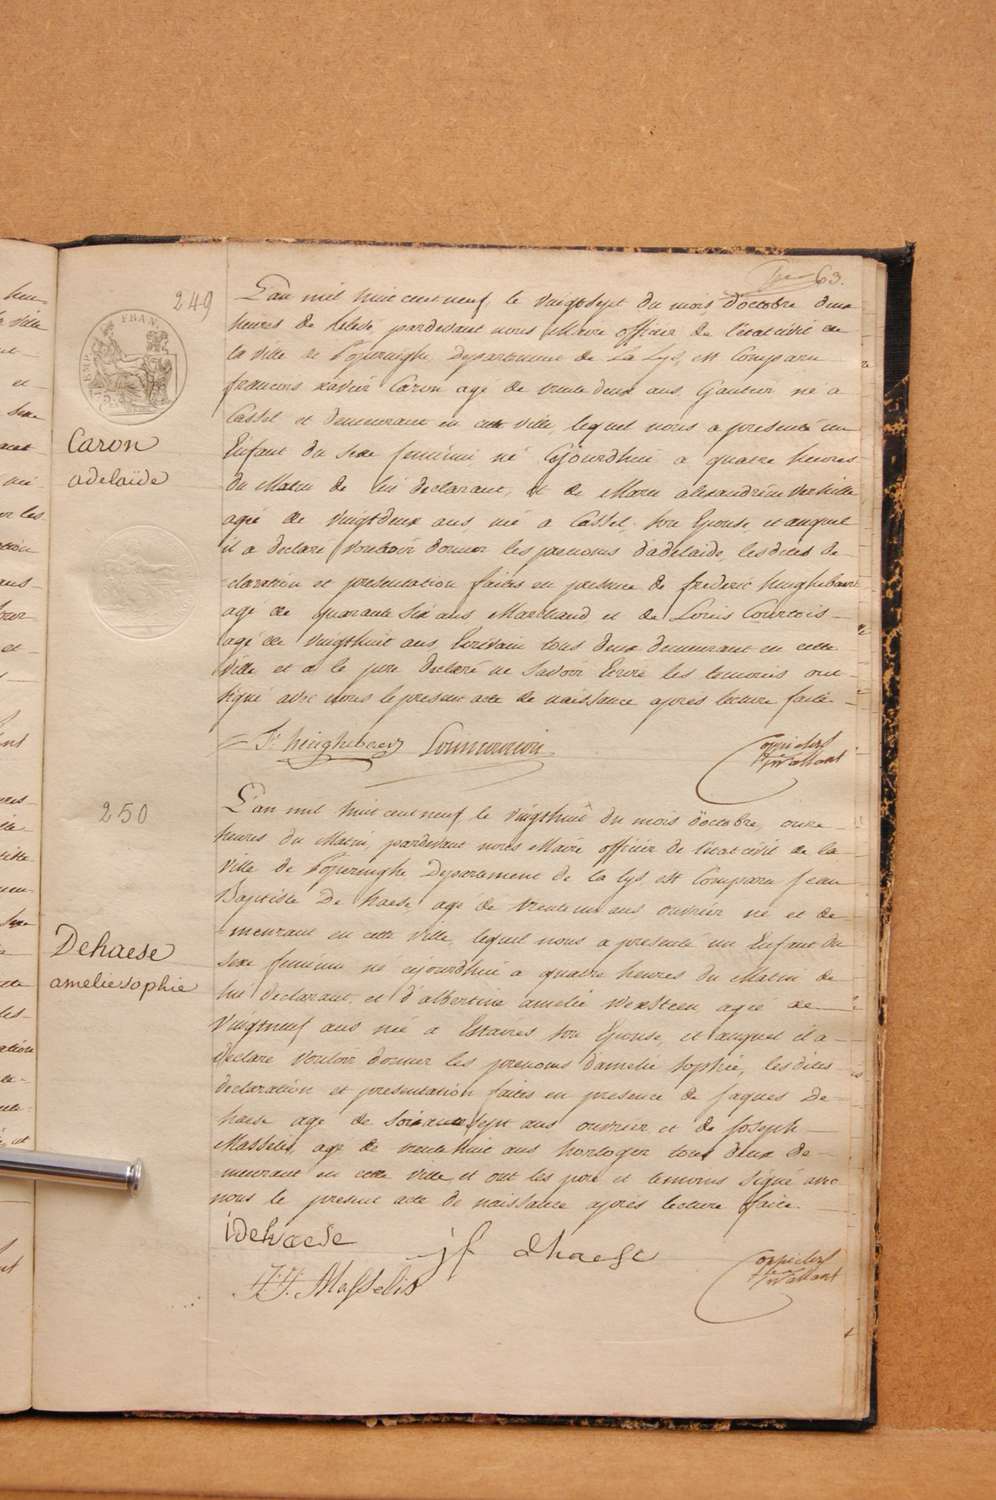 63.
249
L'an mil huit cent neuf le vingt sept du mois d'octobre deux
heures de relevé, pardevant nous Maire officier de l'état civil de
la ville de Poperinghe, Departement de La Lys, est Comparu
francois xavier Caron agé de trente deux ans, né a
Cassel et demeurant en cette ville, lequel nous a presenté un
Enfant du sexe feminin né Cejourdhui a quatre heures
du Matin de lui declarant, et de Marie alexandrine
agée de vingtdeux ans, née a Cassel, son Epouse, et auquel
il a declaré vouloir donner les prenoms d'adelaïde, les dites de-
claration et presentation faites en presence de frederic hinghebaert
agé de quarante six ans Marchand et de Louis Courtois
agé de vingthuit ans Ecrivain tous deux demeurant en cette
ville et a le pere declaré ne savoir Ecrire les temoins ont
signé avec nous le present acte de naissance après lecture faite.
FRAN
Caron
adelaïde
250
L'an mil huit cent neuf le vingthuit du mois d'octobre, onze
heures du Matin, pardevant nous Maire officier de l'état civil de la
ville de Poperinghe Departement de la Lys est Comparu Jean
Baptiste De haese agé de trente un ans ouvrier né et de-
meurant en cette ville, lequel nous a presenté un Enfant du
sexe feminin né cejourdhui a quatre heures du Matin de
lui declarant, et d'albertine amelie agée de
vingtneuf ans née a Estaires son Epouse, et auquel il a
declaré vouloir donner les prenoms d'amelie sophie, les dites
declaration et presentation faites en presence de Jaques De-
haese agé de soixante sept ans ouvrier et de Joseph
Masselis, agé de trente huit ans horloger tous deux de-
meurant en cette ville, et ont les pere et temoins signé avec
nous le present acte de naissance après lecture faite.
Dehaese
amelie sophie
i dehaese
j f dhaese
Masselis